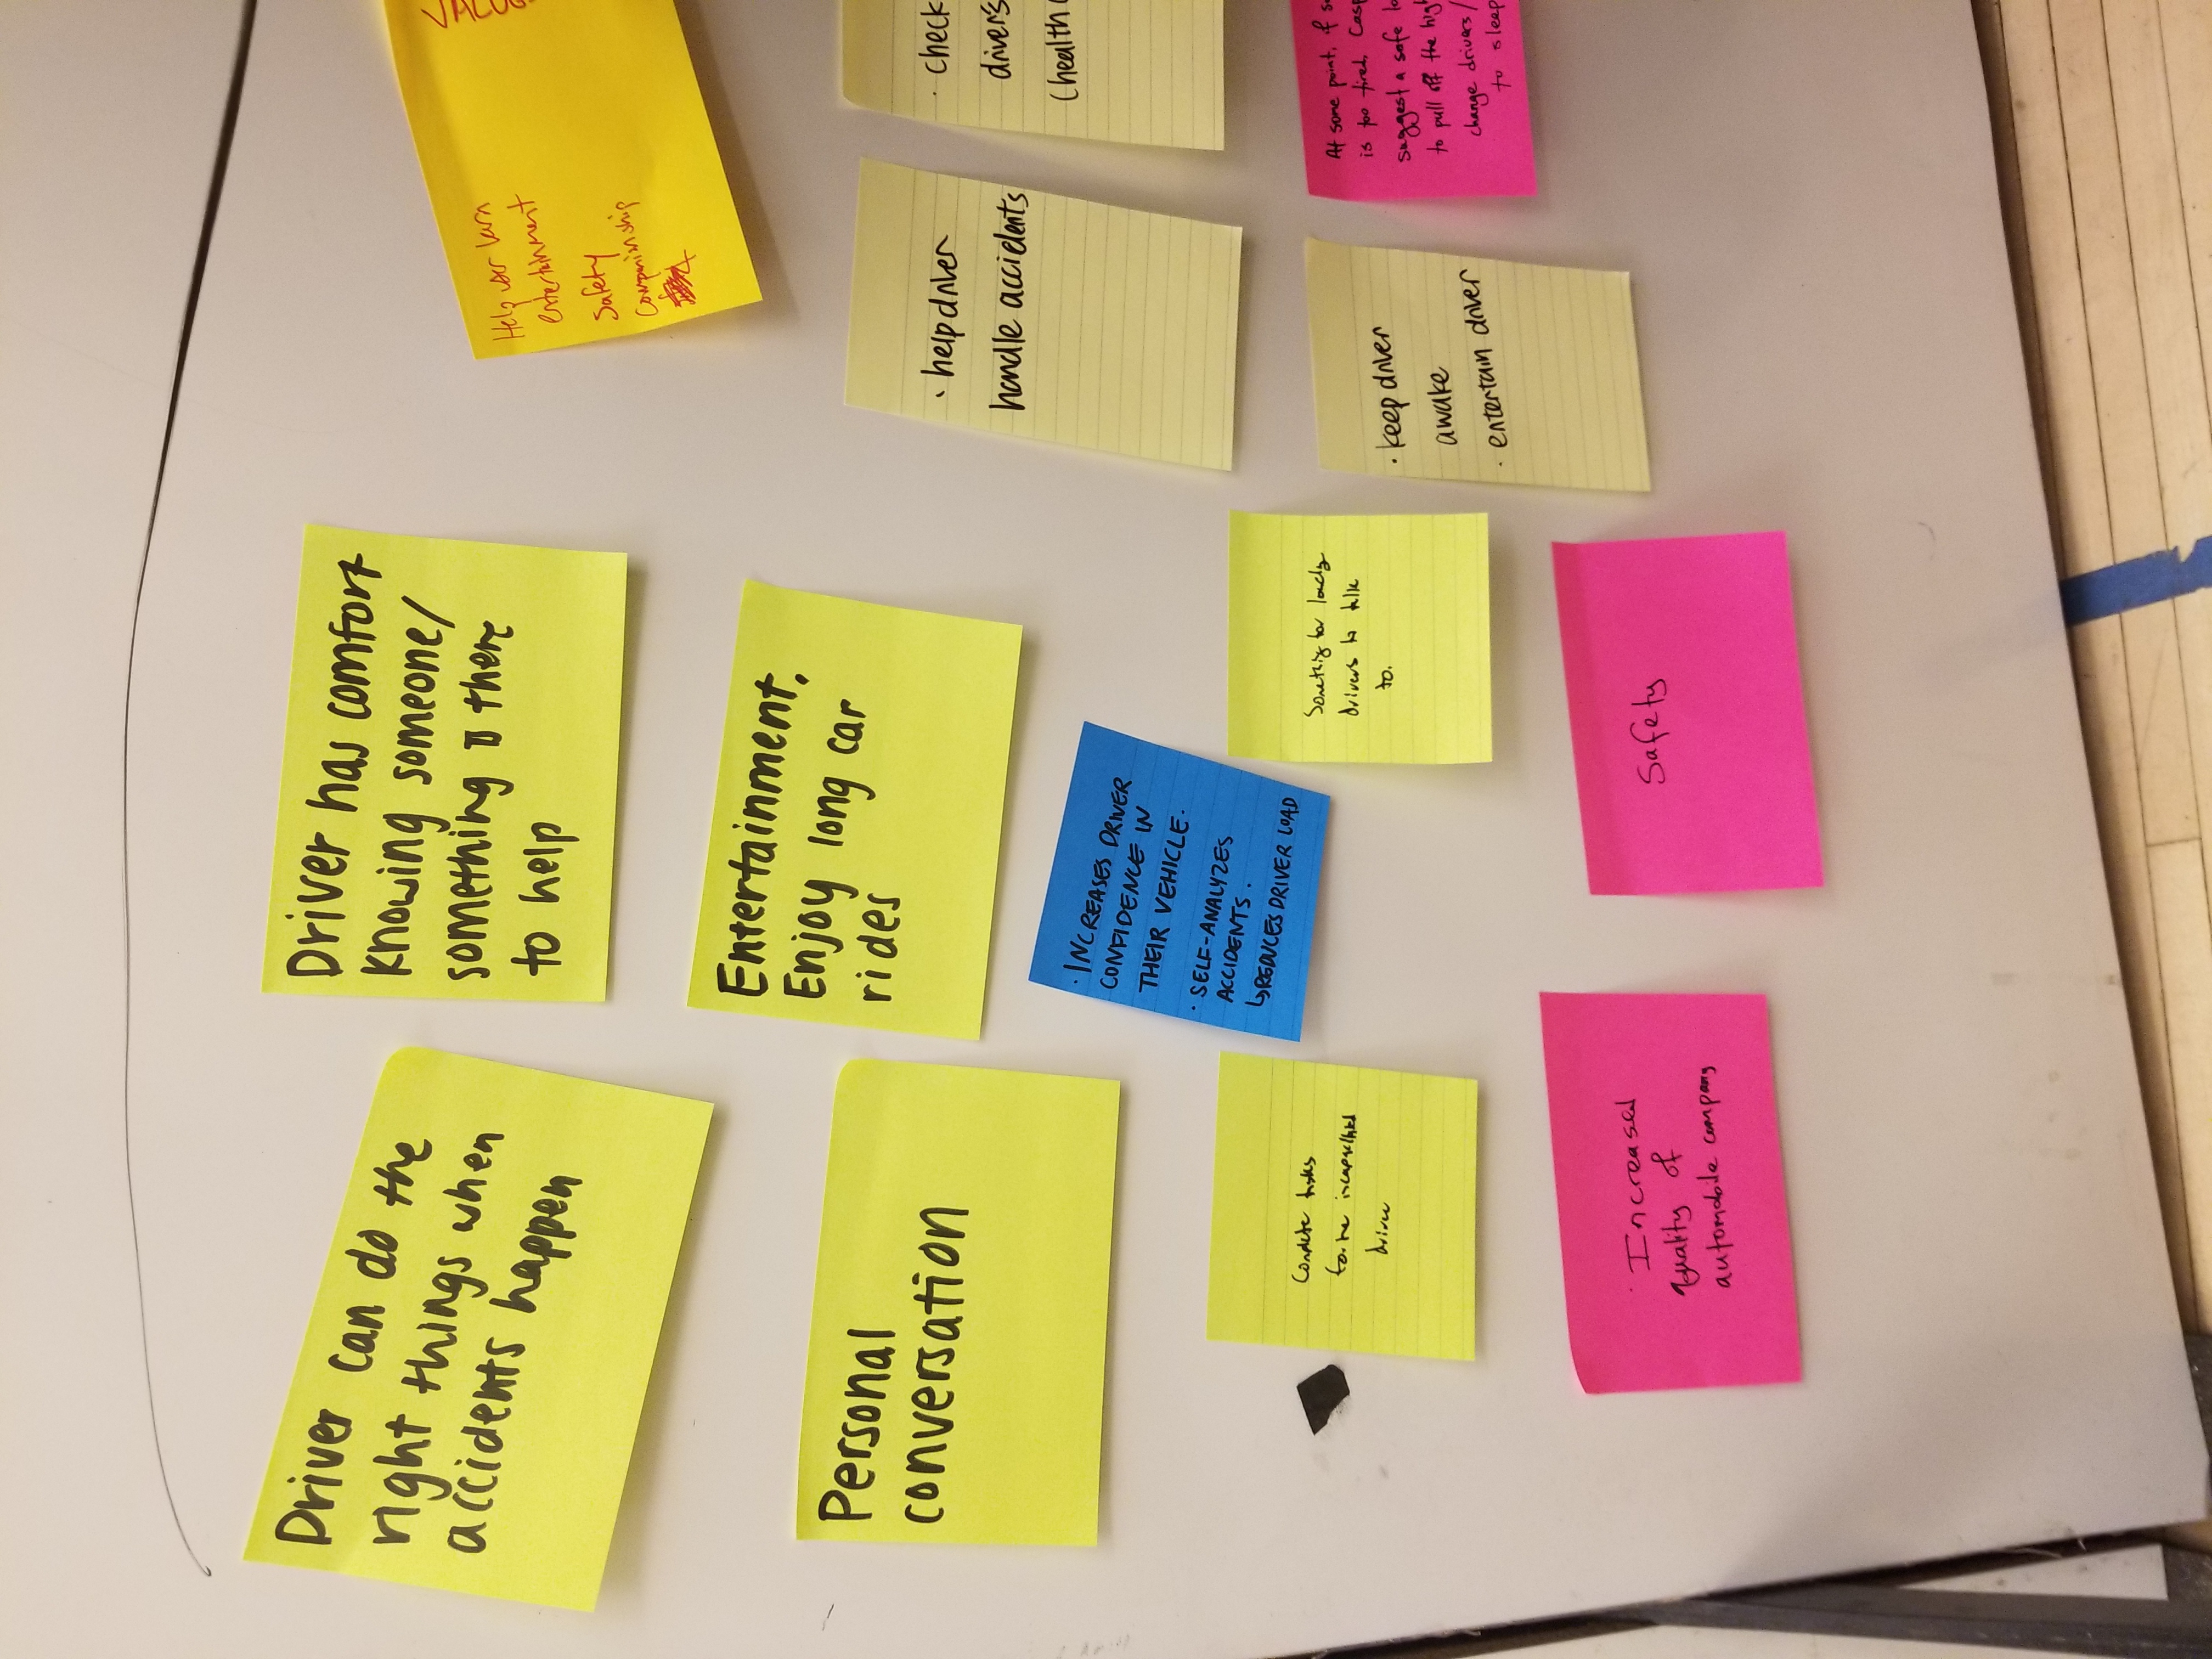 Driver can do the
right things when
accidents happen
Driver has comfort
knowing someone/
something is there
to help
VALUE
Help user learn
entertainment
Safety
Companionship
Personal
conversation
Entertainment.
Enjoy long car
rides
· help driver
handle accidents
· check
driver's
(health
· INCREASES DRIVER
CONFIDENCE IN
THEIR VEHICLE.
· SELF-ANALYZES
ACCIDENTS.
↳REDUCES DRIVER LOAD
Complete tasks
for the incapacitated
driver
Something for lonely
drivers to talk
to.
· keep driver
awake
· entertain driver
At some point, if
is too tired,
suggest a safe
to pull off the
change drivers/
to sleep
· Increased
quality of
automobile company
Safety